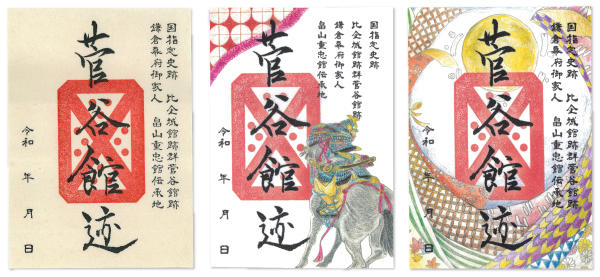 国指定史跡　比企城館跡群菅谷館跡
鎌倉幕府御家人　畠山重忠館伝承地
菅谷館迹
令和　年　月　日
国指定史跡
比企城館跡群菅谷館跡
鎌倉幕府御家人
畠山重忠館伝承地
菅谷館迹
令和　年　月　日
国指定史跡　比企城館跡群菅谷館跡
鎌倉幕府御家人　畠山重忠館伝承地
菅谷館迹
令和　年　月　日